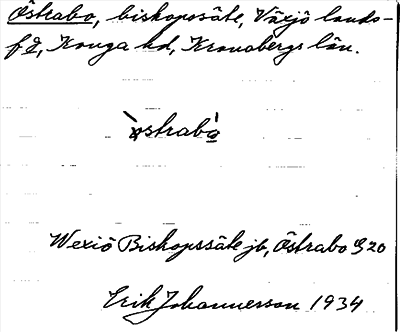 Östrabo, biskopssäte, Växjö lands-
f g, Konga hd, Kronobergs län.
östrabo
Wexiö Biskopssäte jb, Östrabo G 20
Erik Johannesson 1934